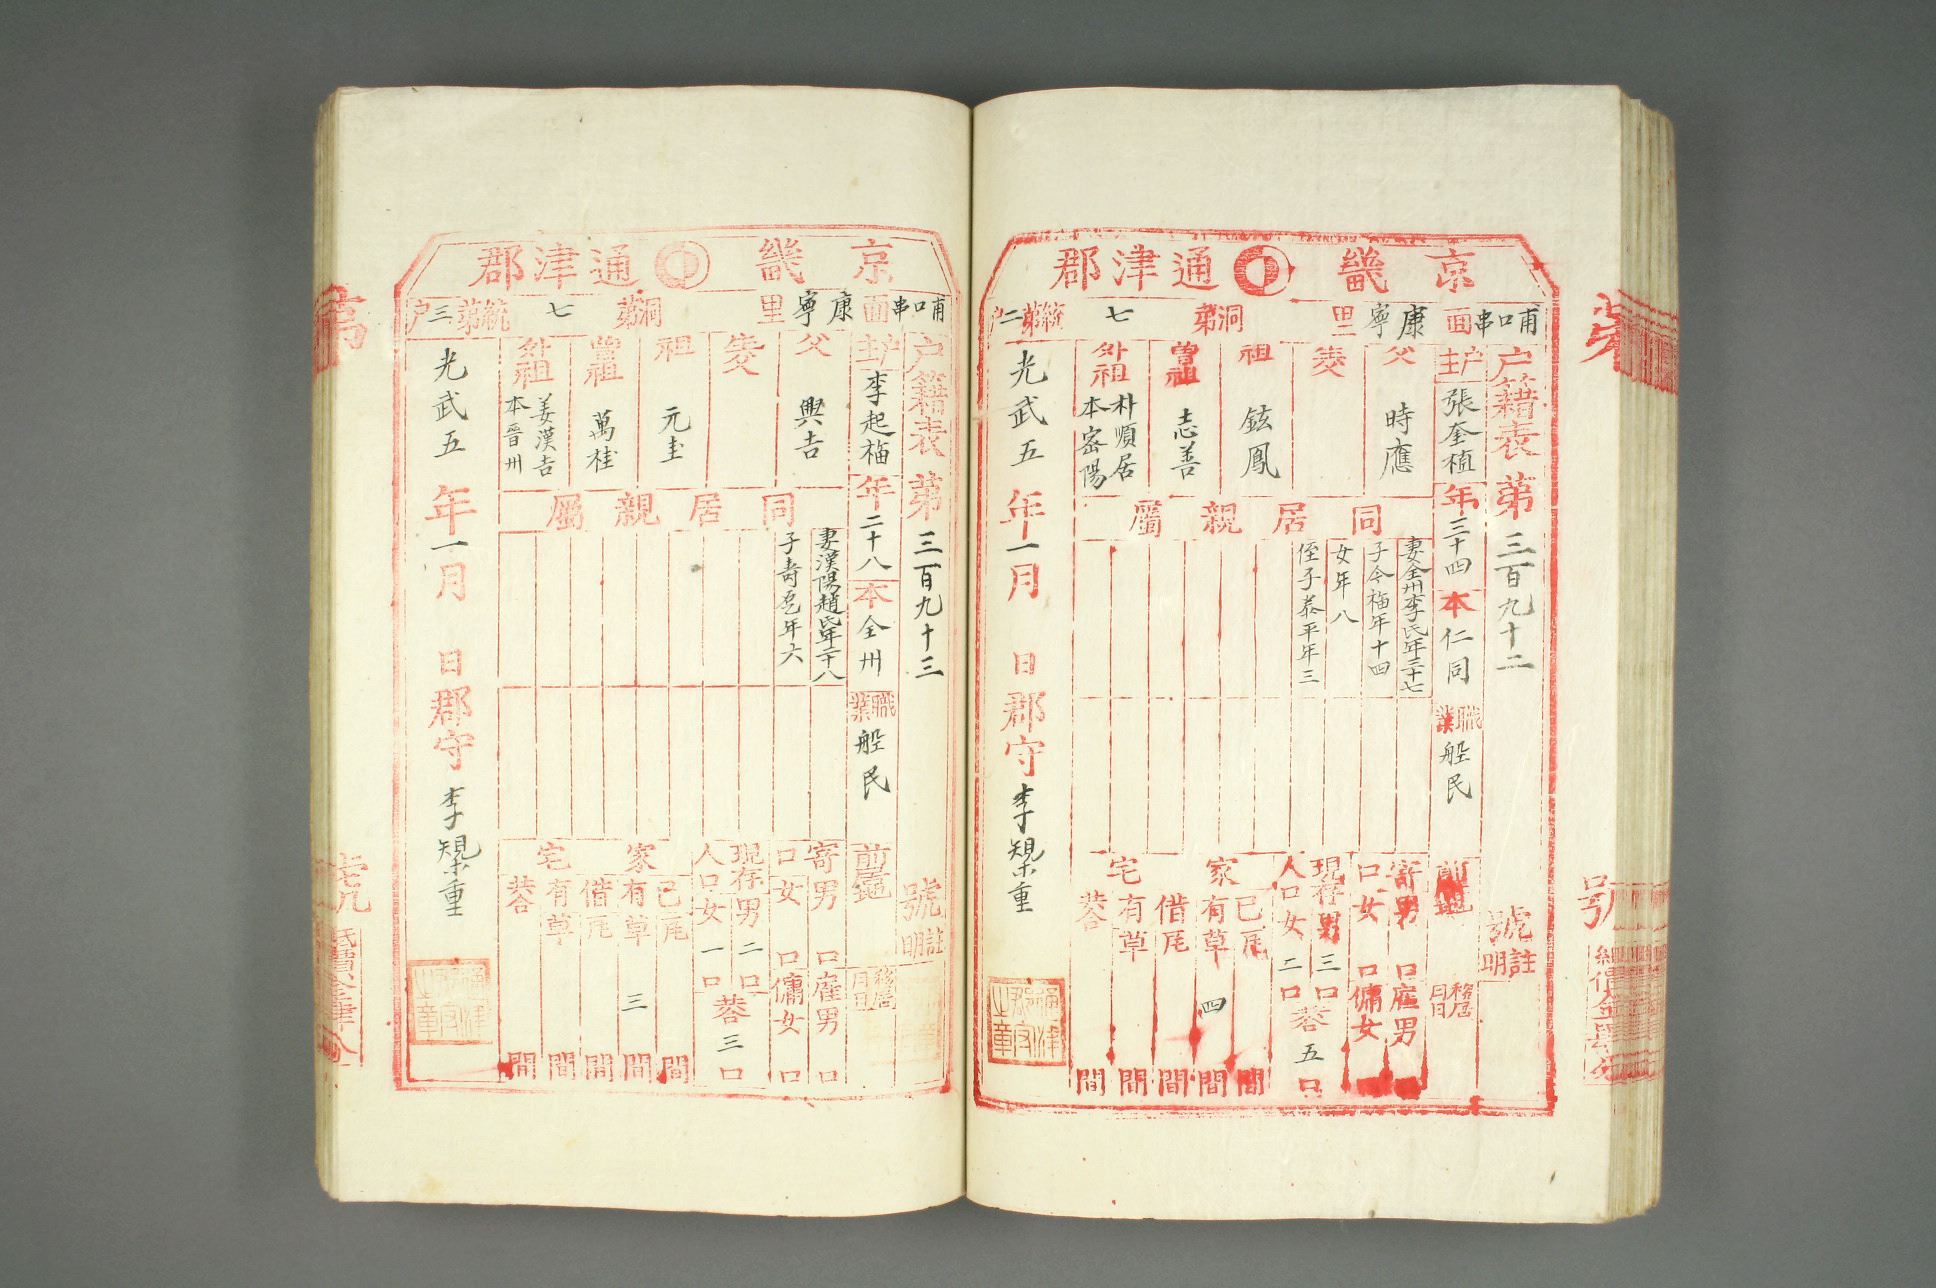 京畿 通津郡
哺口串面 康寧里 洞第 七 統第二户
户籍表 第 三百九十二 號
註明
户主 張奎植 年 三十四 本 仁同 職業 船民 前居地
移居月日
父 時應
妻全州李氏年三十七
子今福年十四
女年八
侄子泰平年三
生父
祖 鉉鳳
曾祖 志善
外祖 朴順居
本密陽
同居親屬
寄口 男 口 雇男 口
女 口 傭女 口
現存人口 男 三 口
女 二 口
共 五 口
家宅 己有 瓦 間
草 四 間
借有 瓦 間
草 間
共 間
光武五年一月 日 郡守 李熙重
通津郡守之章
京畿 通津郡
哺口串面 康寧里 洞第 七 統第三户
户籍表 第 三百九十三 號
註明
户主 李起福 年 二十八 本 全州 職業 船民 前居地
移居月日
父 興吉
生父
祖 元圭
曾祖 萬桂
外祖 姜漢吉
本晉州
同居親屬
妻漢陽趙氏年二十八
子壽石年六
寄口 男 口 雇男 口
女 口 傭女 口
現存人口 男 二 口
女 一 口
共 三 口
家宅 己有 瓦 間
草 三 間
借有 瓦 間
草 間
共 間
光武五年一月 日 郡守
通津郡守之章